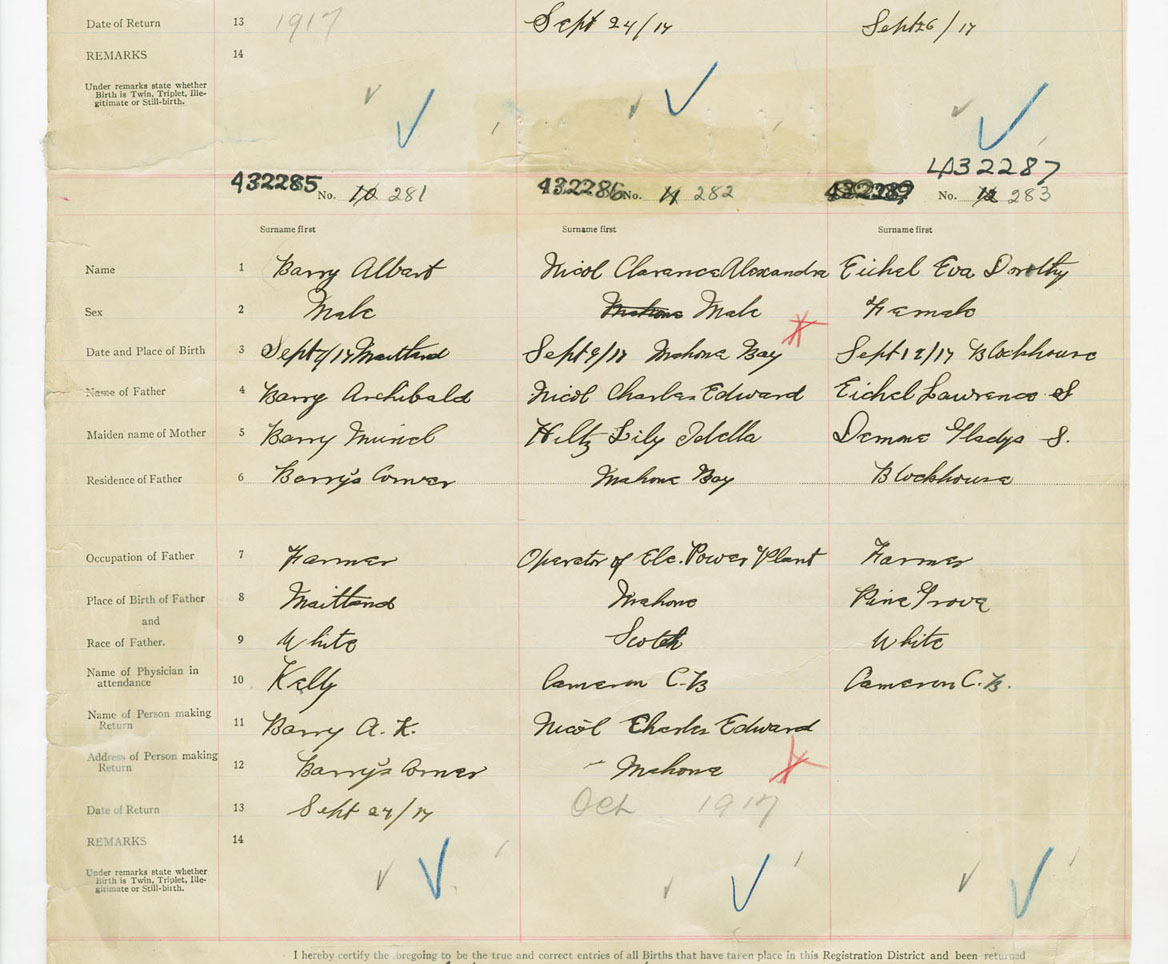 Date of Return 13 1917 Sept 24/17 Sept 26/17
REMARKS 14
Under remarks state whether
Birth is Twin, Triplet, Ille-
gitimate or Still-birth.
432287
432285 No. 10 281 432286 No. 11 282 No. 12 283
Surname first Surname first Surname first
Name 1 Barry Albert Nicol Clarence Alexandra Eichel Eva Dorothy
Sex 2 Male Mahone Male Female
Date and Place of Birth 3 Sept 7/17 Maitland Sept 9/17 Mahone Bay Sept 12/17 Blockhouse
Name of Father 4 Barry Archibald Nicol Charles Edward Eichel Lawrence S
Maiden name of Mother 5 Barry Muriel Hiltz Lily Idella Demone Gladys S.
Residence of Father 6 Barry's Corner Mahone Bay Blockhouse
Occupation of Father 7 Farmer Operator of Ele. Power Plant Farmer
Place of Birth of Father 8 Maitland Mahone Pine Grove
and
Race of Father. 9 White Scotch White
Name of Physician in
attendance 10 Kelly Cameron C. B Cameron C. B.
Name of Person making
Return 11 Barry A. K. Nicol Charles Edward
Address of Person making
Return 12 Barry's Corner Mahone
Date of Return 13 Sept 27/17 Oct 1917
REMARKS 14
Under remarks state whether
Birth is Twin, Triplet, Ille-
gitimate or Still-birth.
I hereby certify the foregoing to be the true and correct entries of all Births that have taken place in this Registration District and been returned